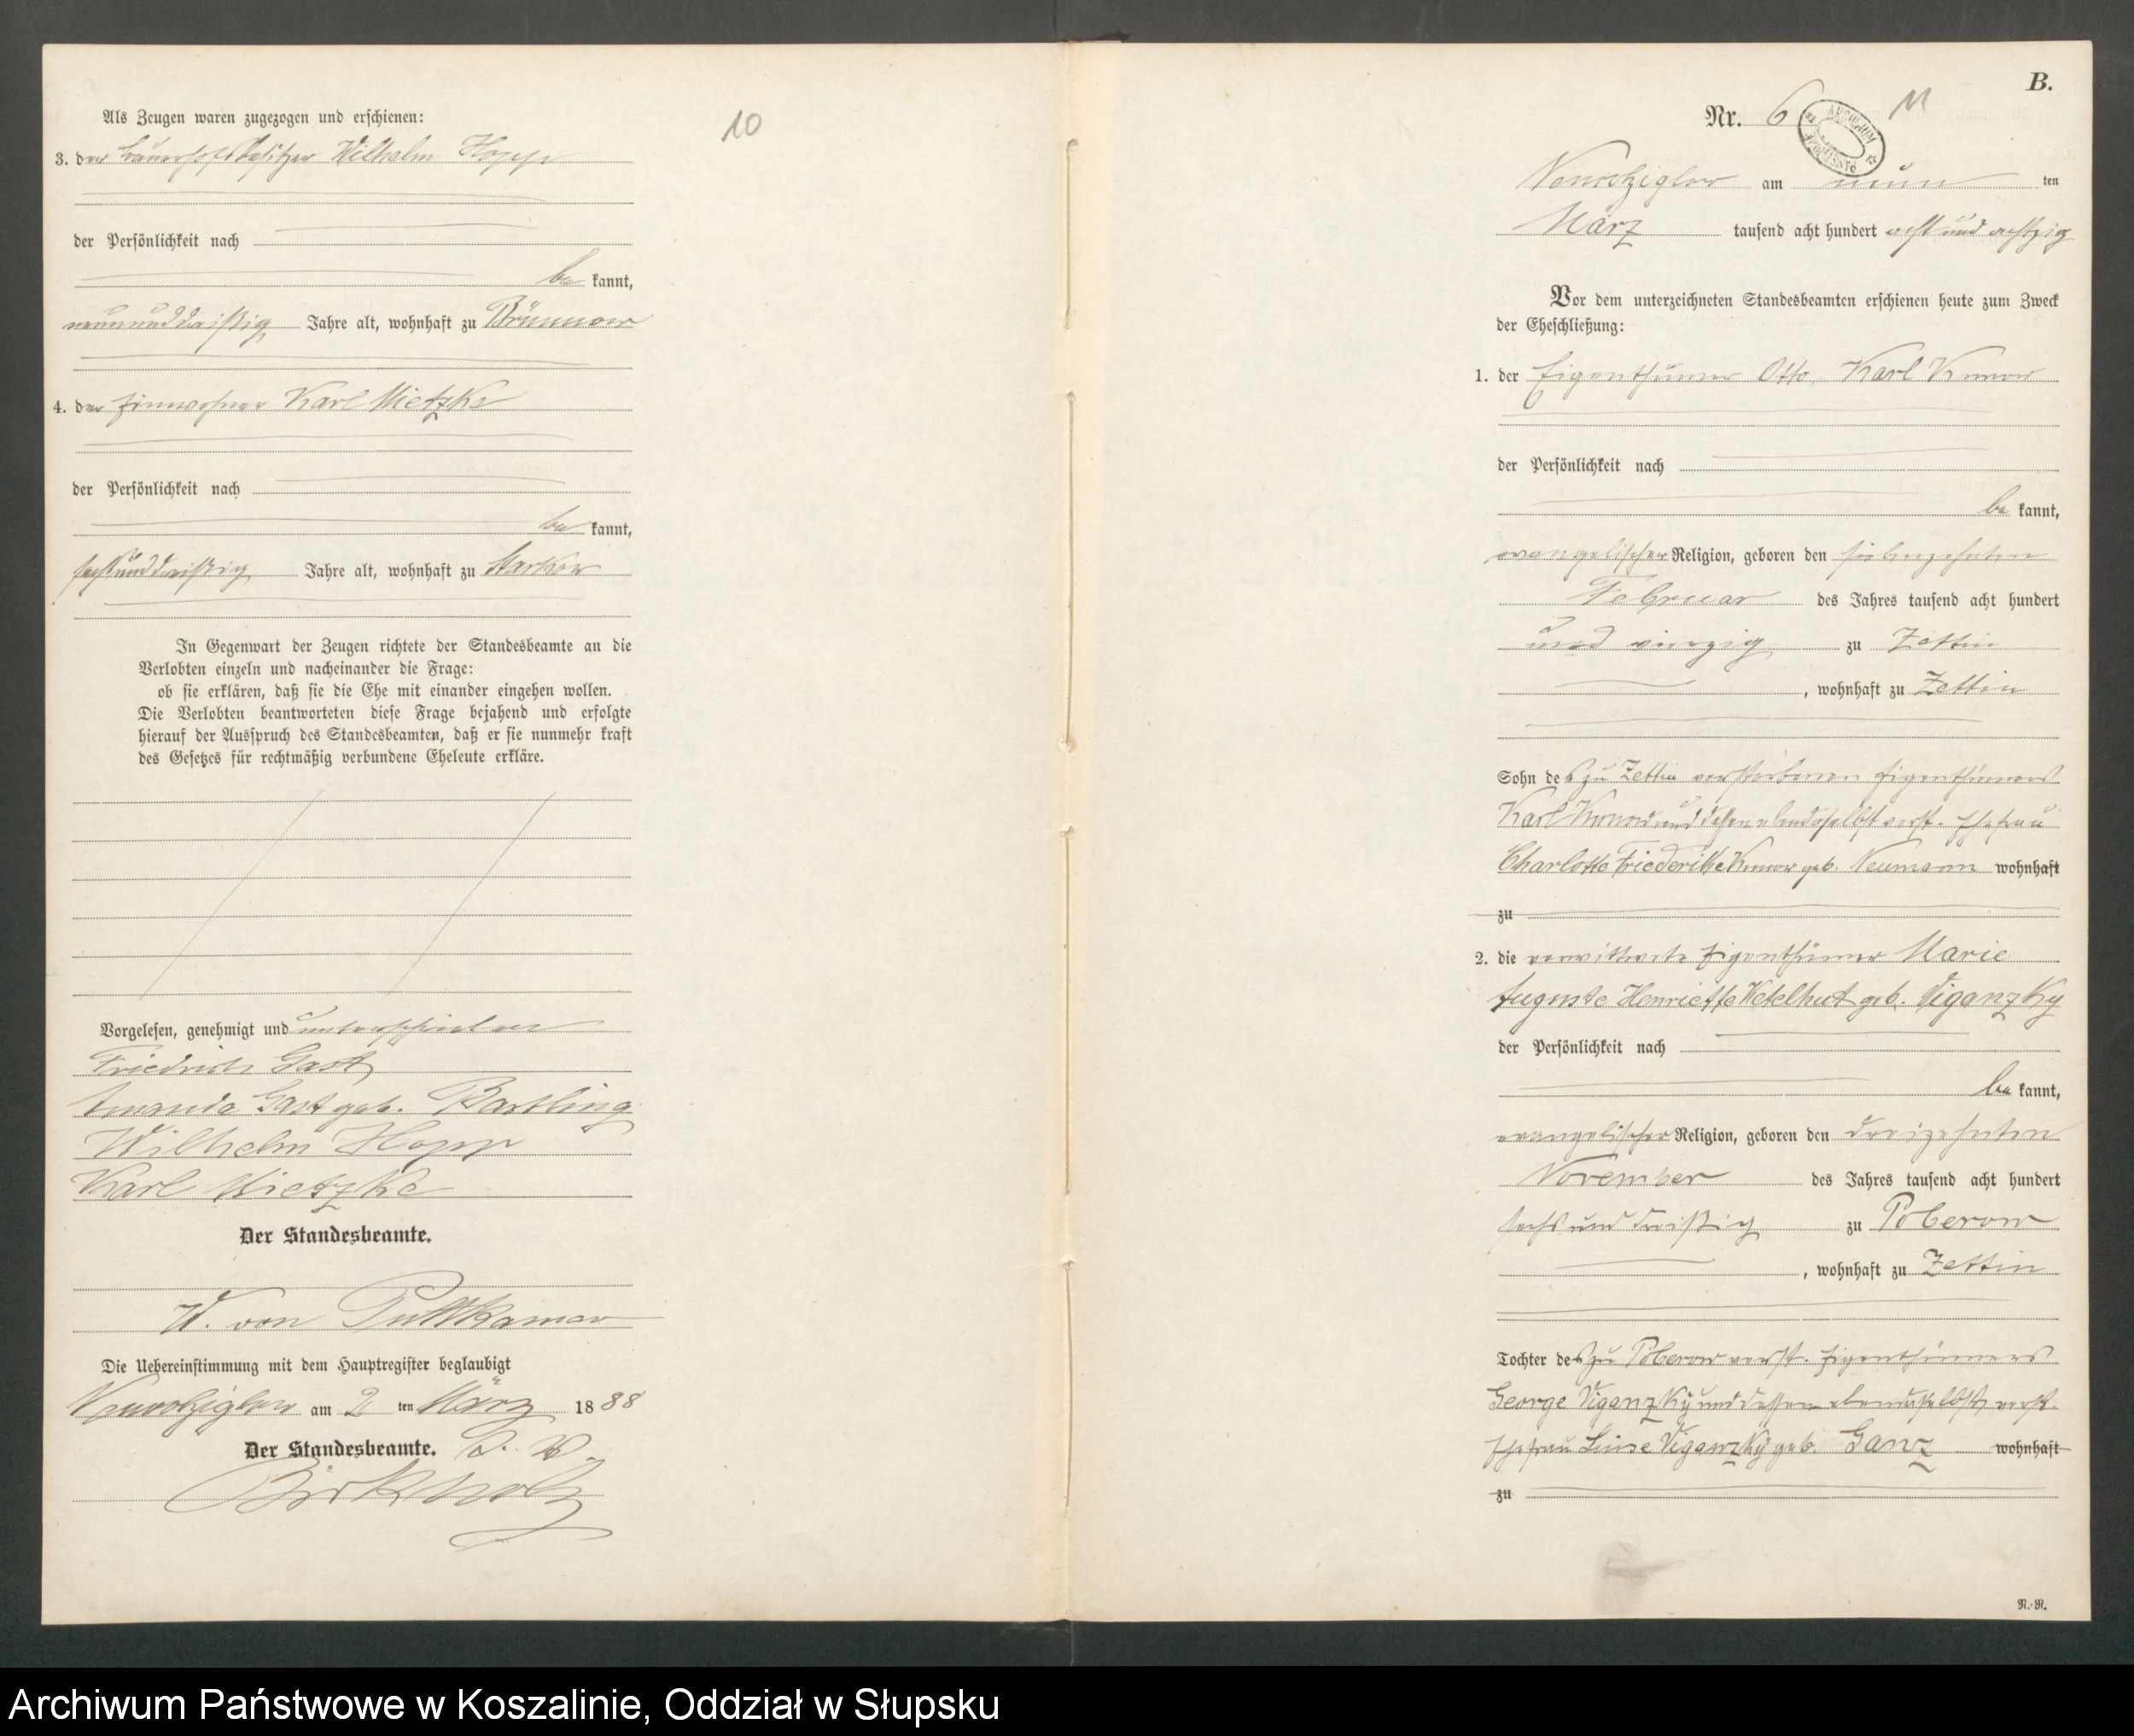 Als Zeugen waren zugezogen und erschienen:
3. der Bauerhofsbesitzer Wilhelm Hopp
der Persönlichkeit nach
be kannt,
neununddreißig Jahre alt, wohnhaft zu Brünnow
4. der Einwohner Karl Mietzke
der Persönlichkeit nach
be kannt,
sechsunddreißig Jahre alt, wohnhaft zu Starkow
In Gegenwart der Zeugen richtete der Standesbeamte an die
Verlobten einzeln und nacheinander die Frage:
ob sie erklären, daß sie die Ehe mit einander eingehen wollen.
Die Verlobten beantworteten diese Frage bejahend und erfolgte
hierauf der Ausspruch des Standesbeamten, daß er sie nunmehr kraft
des Gesetzes für rechtmäßig verbundene Eheleute erkläre.
Vorgelesen, genehmigt und unterschrieben
Friedrich Gast
Amanda Gast geb. Bartling
Wilhelm Hopp
Karl Mietzke
Der Standesbeamte.
W. von Puttkamer
Die Uebereinstimmung mit dem Hauptregister beglaubigt
am 2 ten März 18 88
Der Standesbeamte. I. V.
Birkholz
10
B.
Nr. 6
11
ARCHIWUM
am neun ten
März tausend acht hundert acht und achtzig
Vor dem unterzeichneten Standesbeamten erschienen heute zum Zweck
der Eheschließung:
1. der Eigenthümer Otto Karl Kunow
der Persönlichkeit nach
be kannt,
evangelischer Religion, geboren den siebenzehnten
Februar des Jahres tausend acht hundert
und vierzig zu Zettin
, wohnhaft zu Zettin
Sohn des zu Zettin verstorbenen Eigenthümers
Karl Kunow und dessen ebendaselbst verst. Ehefrau
Charlotte Friederike Kunow geb. Neumann wohnhaft
zu
2. die verwittwete Eigenthümer Marie
Auguste Henriette Ketelhut geb. Viganzky
der Persönlichkeit nach
be kannt,
evangelischer Religion, geboren den dreizehnten
November des Jahres tausend acht hundert
sechs und dreißig zu Poberow
, wohnhaft zu Zettin
Tochter des zu Poberow verst. Eigenthümers
George Viganzky und dessen ebendaselbst verst.
Ehefrau Luise Viganzky geb. Ganz wohnhaft
zu
N.-R.
Archiwum Państwowe w Koszalinie, Oddział w Słupsku